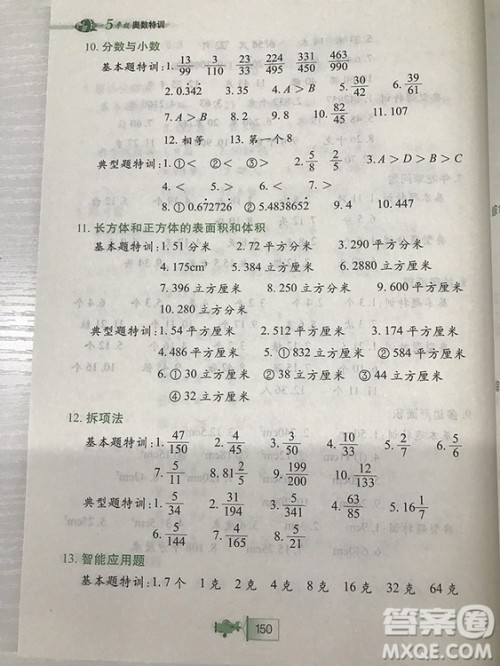 5年级 奥数特训
10. 分数与小数
基本题特训: 1. 13/99 3/110 23/66 224/495 331/450 463/900
2. 0.342 3. 35 4. A > B 5. 30/42 6. 39/61
7. A > B 8. A > B 9. 8 10. 82/45 11. 107
12. 相等 13. 第一个 8
典型题特训: 1. ①< ②< ③> 2. 5/8 2/5 3. A > D > B > C
4. < 5. > 6. < 7. 8 8. 4 9. 4 10. 447
11. ① 0.672726 ② 5.4838652 ③
11. 长方体和正方体的表面积和体积
基本题特训: 1. 51 分米 2. 72 平方分米 3. 290 平方分米
4. 175cm³ 5. 384 立方厘米 6. 2880 立方厘米
7. 396 立方厘米 8. 250 立方厘米 9. 600 平方厘米
10. 280 立方分米
典型题特训: 1. 54 平方厘米 2. 512 3. 34 平方厘米
4. 486 平方厘米 5. ① 532 平方厘米 ② 584 平方厘米
6. ① 30 立方厘米 ② 38 立方厘米 ③ 42 立方厘米
④ 32 立方厘米
12. 拆项法
基本题特训: 1. 47/150 2. 4/45 3. 3/50 4. 10/33 5. 2/7 6. 5/6
7. 5/11 8. 81 2/5 9. 199/200 10. 12/133
典型题特训: 1. 5/34 2. 31/194 3. 5/341 4. 63/64 5. 85/512 6. 16 1/7
7. 5/144 8. 7/18
13. 智能应用题
基本题特训: 1. 7 个 1 克 2 克 4 克 8 克 16 克 32 克 64 克
150
答案圈
MXQE.COM